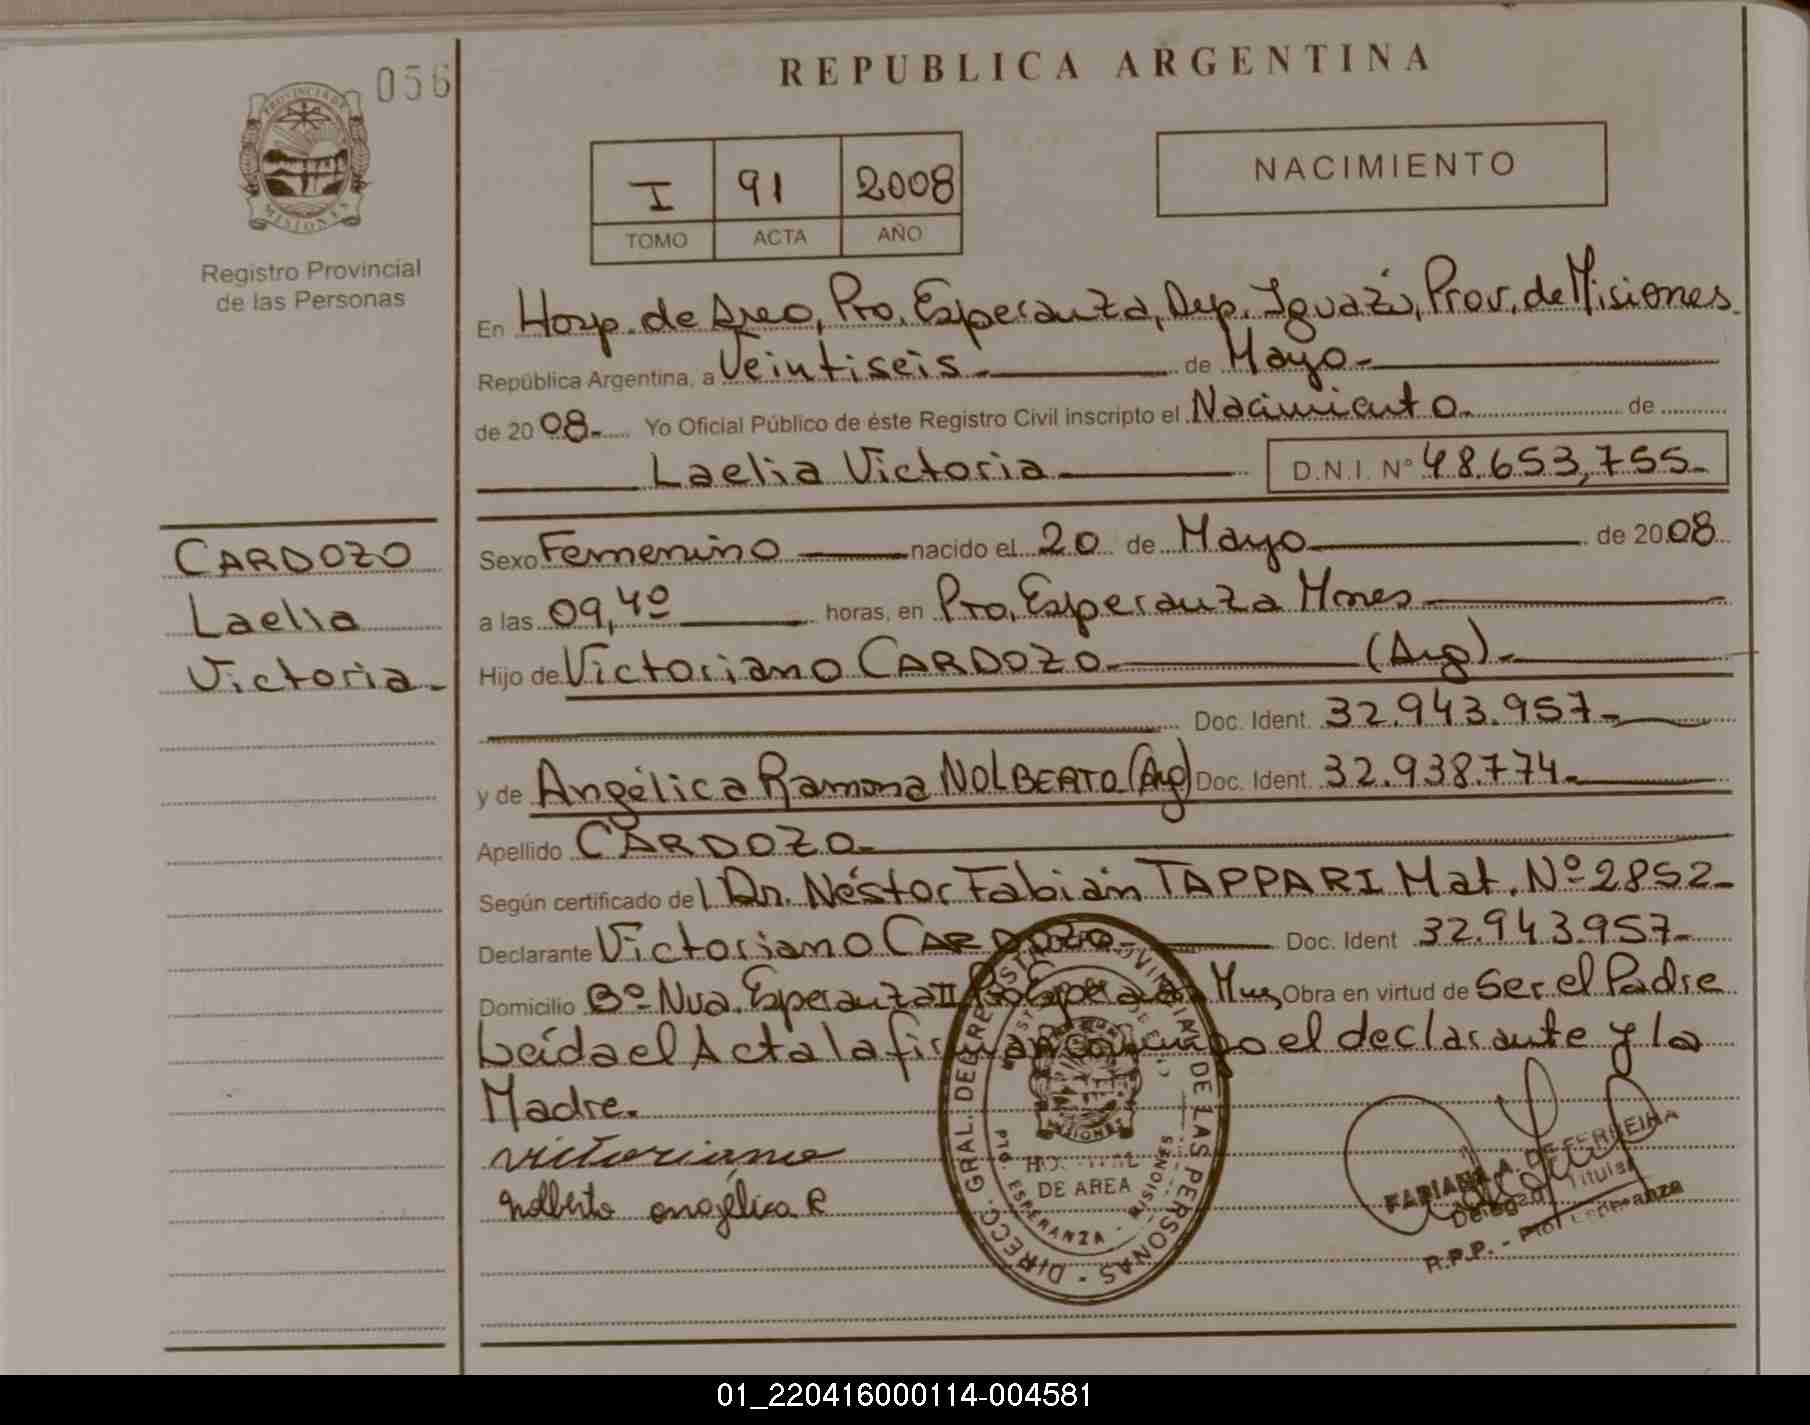 056
REPUBLICA ARGENTINA
PROVINCIA DE
MISIONES
Registro Provincial
de las Personas
I 91 2008
TOMO ACTA AÑO
NACIMIENTO
En Hosp. de Area, Pto. Esperanza, Dep. Iguazú, Prov. de Misiones.
República Argentina, a Veintiseis de Mayo
de 2008 Yo Oficial Público de éste Registro Civil inscripto el Nacimiento de
Laelia Victoria D.N.I. Nº 48.653,755
CARDOZO
Laelia
Victoria
Sexo Femenino nacido el 20 de Mayo de 2008
a las 09,40 horas, en Pto. Esperanza Mnes
Hijo de Victoriano CARDOZO (Arg)
Doc. Ident. 32.943.957
y de Angélica Ramona NOLBERTO (Arg) Doc. Ident. 32.938.774
Apellido CARDOZO
Según certificado del Dr. Néstor Fabián TAPPARI Mat. Nº 2852
Declarante Victoriano CARDOZO Doc. Ident 32.943.957
Domicilio Bº Nva. Esperanza II Pto Esperanza Obra en virtud de Ser el Padre
Leída el Acta la firman conmigo el declarante y la
Madre.
victoriano
nolberto angélica R
DIRECC. GRAL. DEL REGISTRO PROVINCIAL DE LAS PERSONAS
MISIONES
HOSPITAL
DE AREA
PTO. ESPERANZA - MISIONES
FABIANA A. DE FERREIRA
Delegada Titular
R.P.P. - Pto. Esperanza
01_220416000114-004581